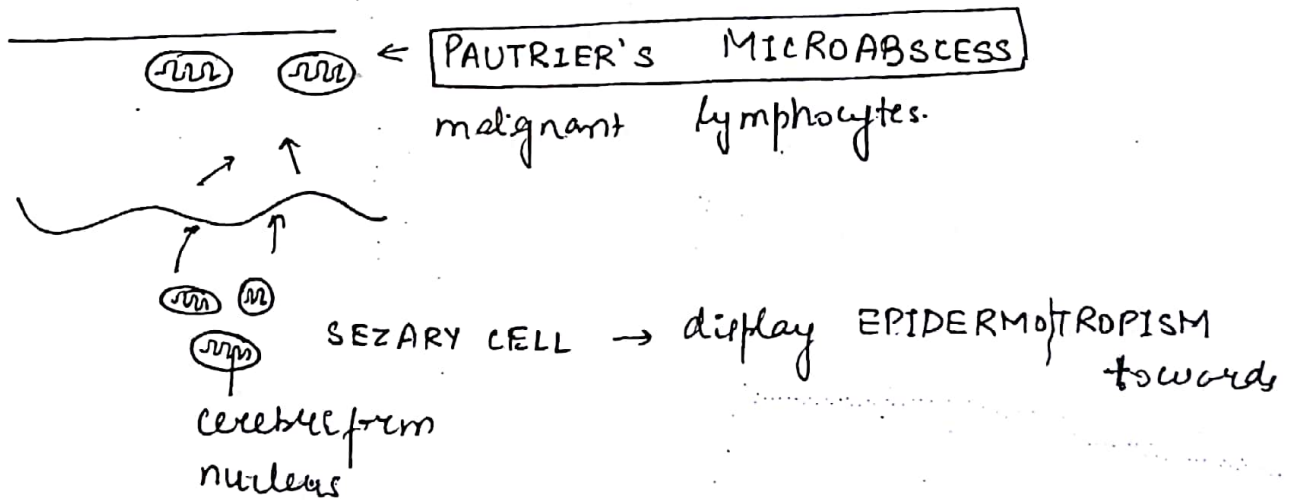 PAUTRIER'S MICROABSCESS
malignant lymphocytes.
SEZARY CELL → display EPIDERMO|TROPISM
towards
cerebriform
nucleus